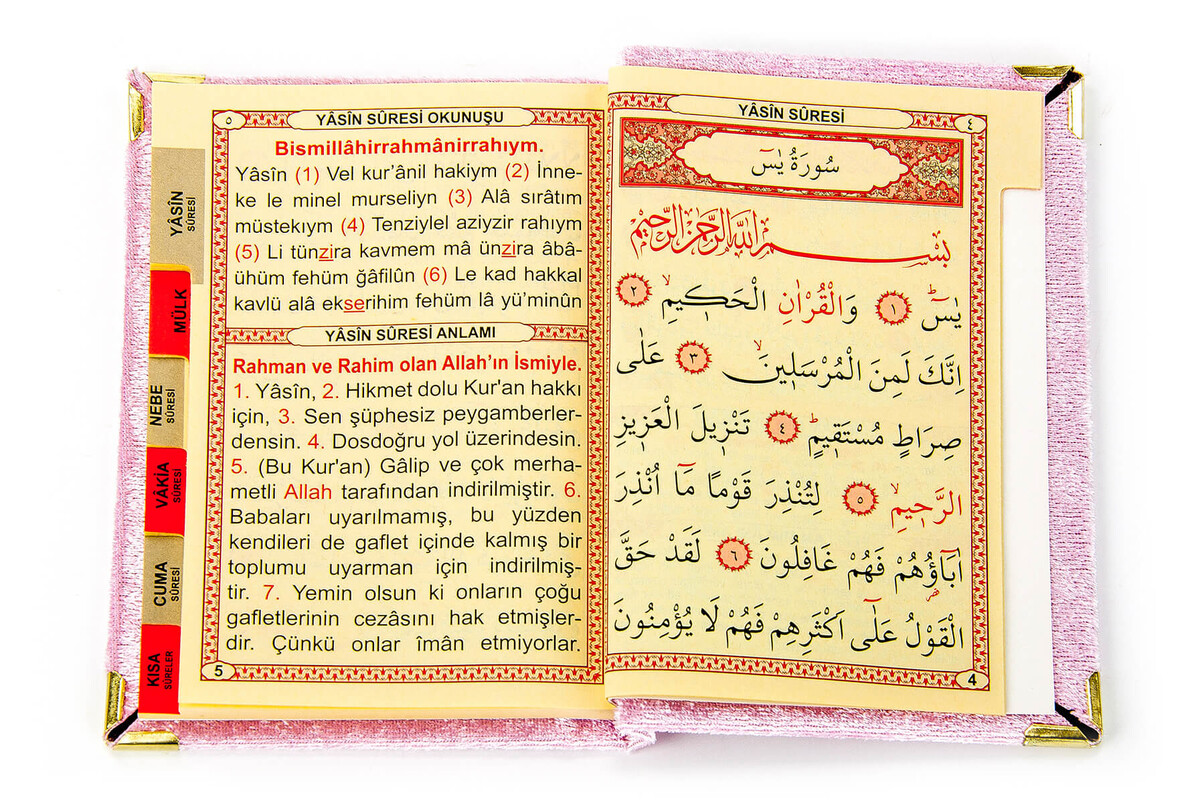 YÂSÎN SÛRESİ
٤
سُورَةُ يٰسٓ
بِسْمِ اللّٰهِ الرَّحْمٰنِ الرَّحِيمِ
يٰسٓ ۚ ﴿١﴾ وَالْقُرْاٰنِ الْحَك۪يمِۙ ﴿٢﴾
اِنَّكَ لَمِنَ الْمُرْسَل۪ينَۙ ﴿٣﴾ عَلٰى
صِرَاطٍ مُسْتَق۪يمٍۜ ﴿٤﴾ تَنْز۪يلَ الْعَز۪يزِ
الرَّح۪يمِۙ ﴿٥﴾ لِتُنْذِرَ قَوْمًا مَٓا اُنْذِرَ
اٰبَٓاؤُ۬هُمْ فَهُمْ غَافِلُونَ ﴿٦﴾ لَقَدْ حَقَّ
الْقَوْلُ عَلٰٓى اَكْثَرِهِمْ فَهُمْ لَا يُؤْمِنُونَ
4
٥
YÂSÎN SÛRESİ OKUNUŞU
Bismillâhirrahmânirrahıym.
Yâsîn (1) Vel kur’ânil hakiym (2) İnne-
ke le minel murseliyn (3) Alâ sırâtım
müstekıym (4) Tenziylel aziyzir rahıym
(5) Li tünzira kavmem mâ ünzira âbâ-
ühüm fehüm ğâfilûn (6) Le kad hakkal
kavlü alâ ekserihim fehüm lâ yü’minûn
YÂSÎN SÛRESİ ANLAMI
Rahman ve Rahim olan Allah’ın İsmiyle.
1. Yâsîn, 2. Hikmet dolu Kur'an hakkı
için, 3. Sen şüphesiz peygamberler-
densin. 4. Dosdoğru yol üzerindesin.
5. (Bu Kur'an) Gâlip ve çok merha-
metli Allah tarafından indirilmiştir. 6.
Babaları uyarılmamış, bu yüzden
kendileri de gaflet içinde kalmış bir
toplumu uyarman için indirilmiş-
tir. 7. Yemin olsun ki onların çoğu
gafletlerinin cezâsını hak etmişler-
dir. Çünkü onlar îmân etmiyorlar.
5
YÂSÎN
SÛRESİ
MÜLK
NEBE
SÛRESİ
VÂKIA
SÛRESİ
CUMA
SÛRESİ
KISA
SÛRELER